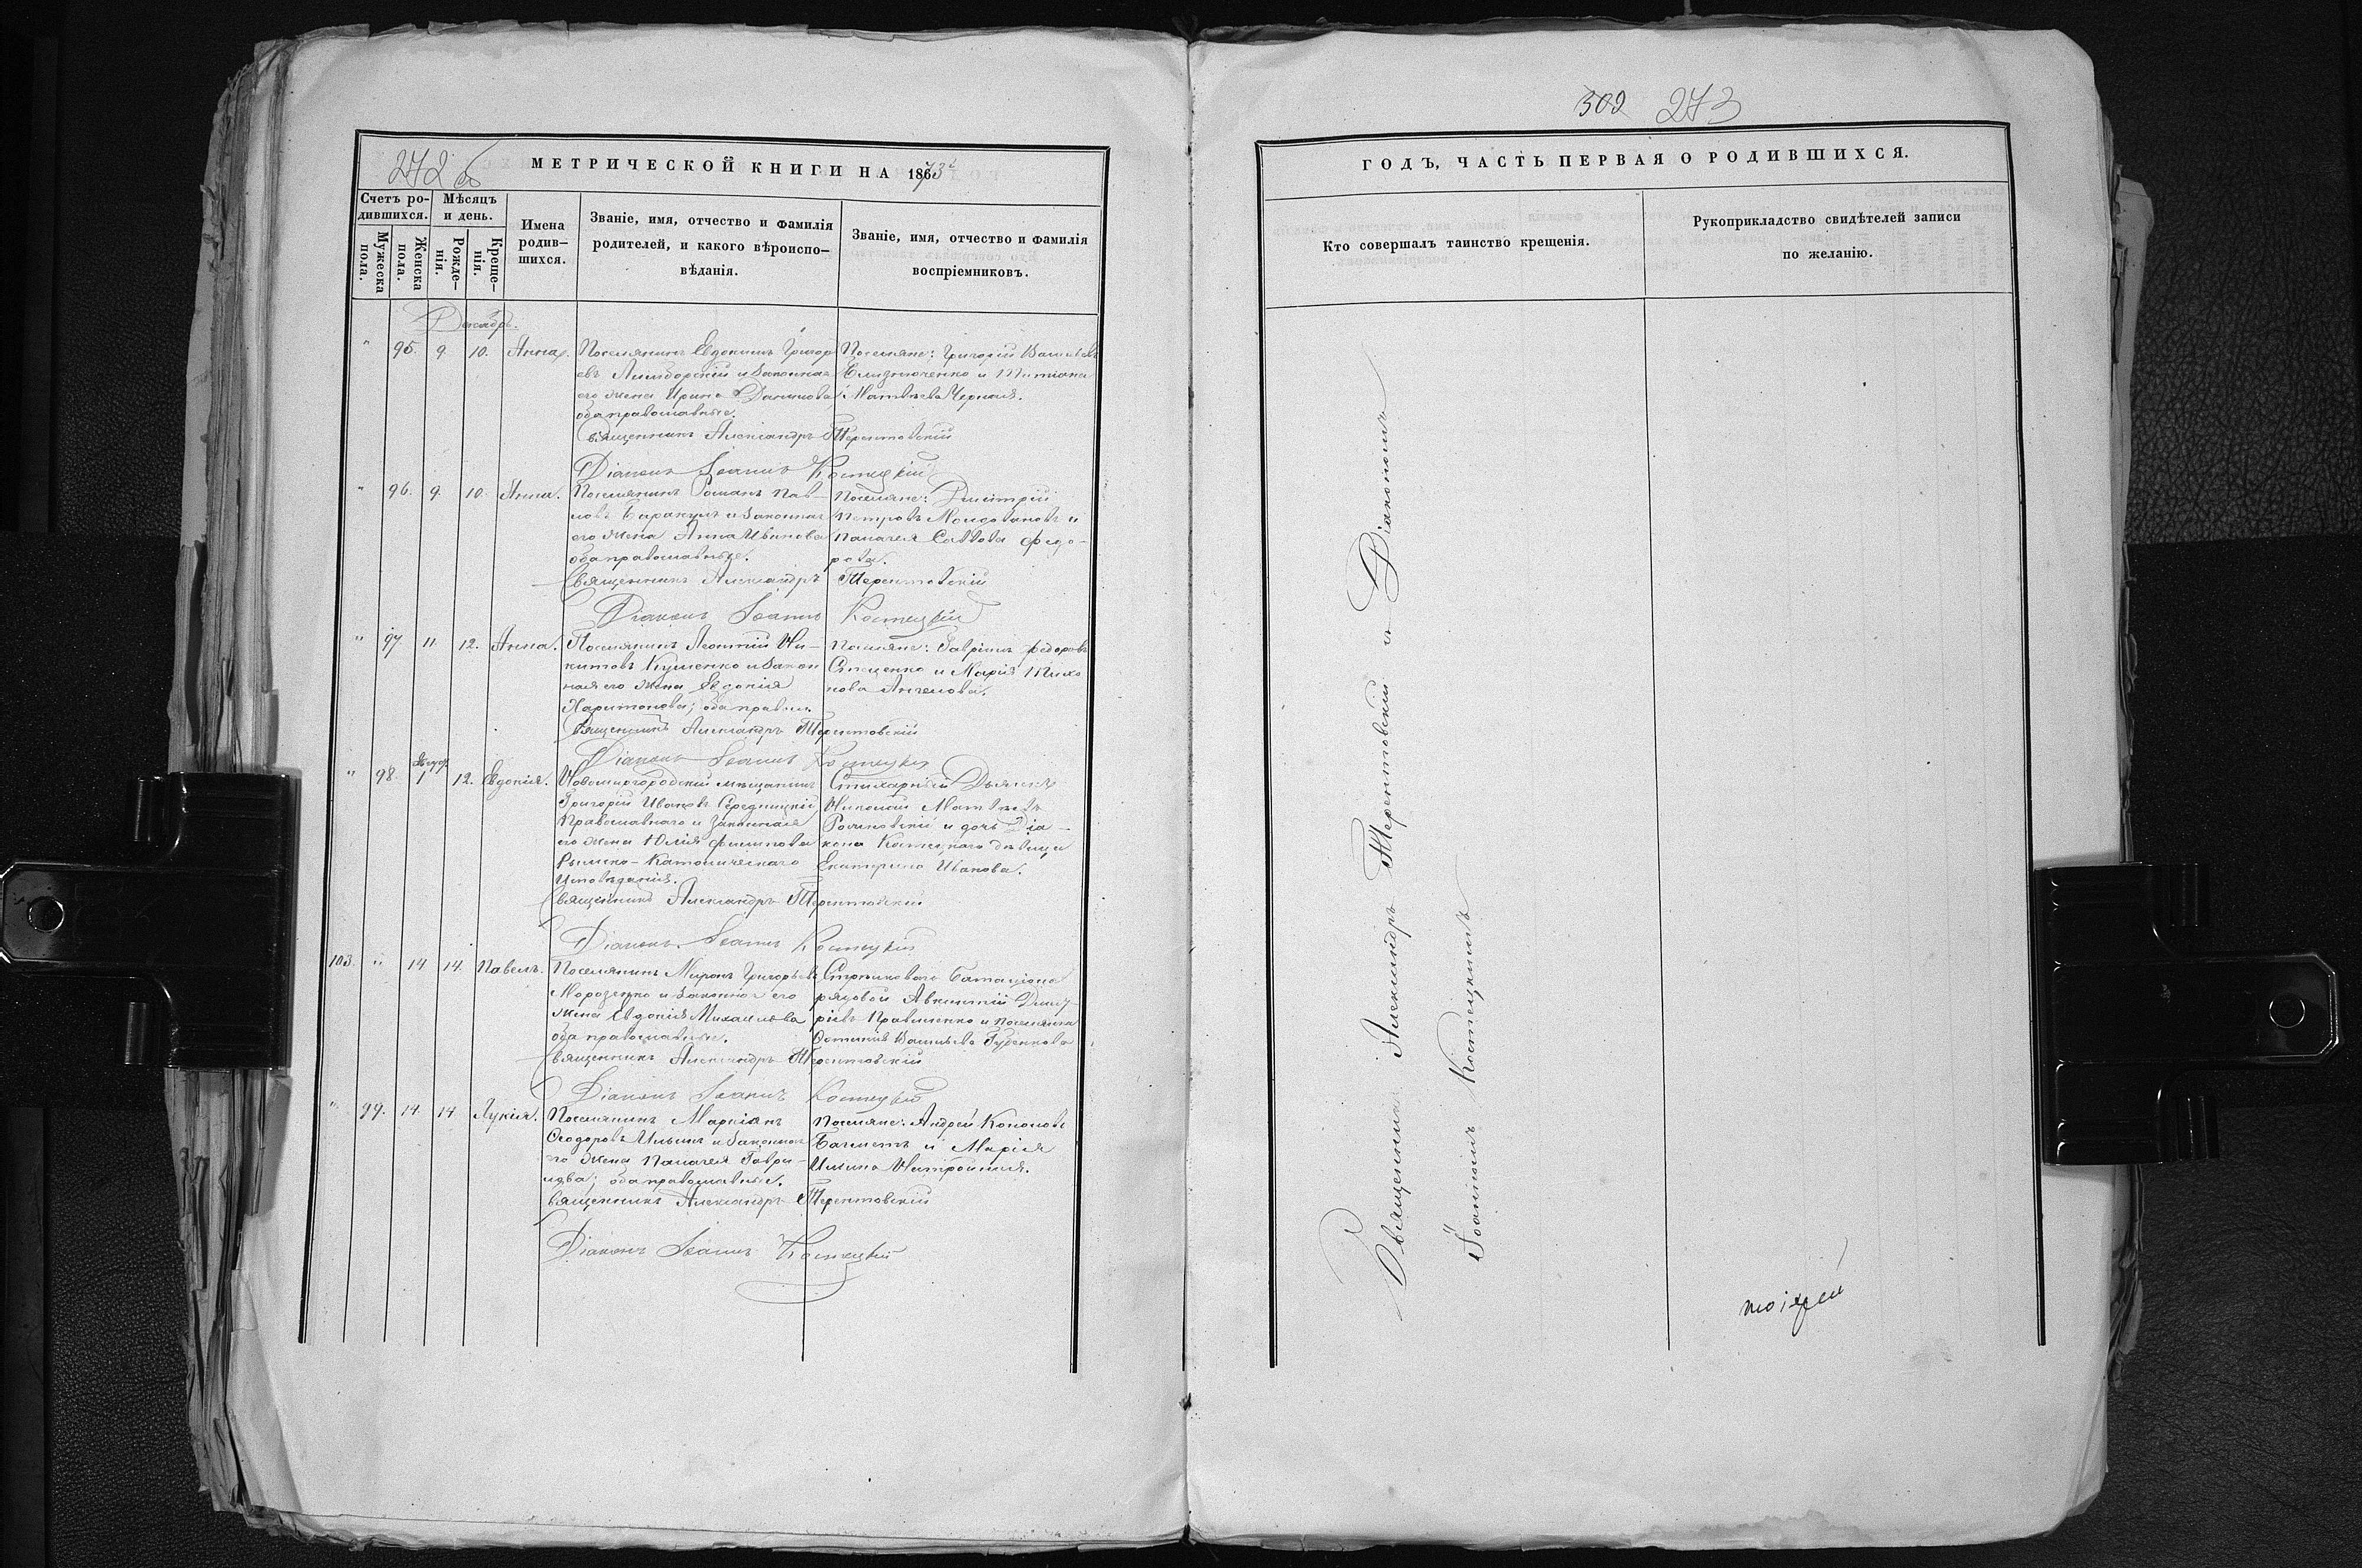 272 б
МЕТРИЧЕСКОЙ КНИГИ НА 1873й
Счетъ родившихся.
Мужеска пола.
Женска пола.
Мѣсяцъ и день.
Рожденія.
Крещенія.
Имена родившихся.
Званіе, имя, отчество и фамилія
родителей, и какого вѣроиспо-
вѣданія.
Званіе, имя, отчество и фамилія
воспріемниковъ.
Декабрь.
" 95. 9. 10. Анна.
Поселянинъ Евдокимъ Григорь-
евъ и законная
его жена Ирина Данилова
оба православные.
Поселяне: Григорій Васильевъ
и Татіана
Матвѣева Черная.
Священникъ Александръ Терентовскій
Діаконъ Іоаннъ Костецкій
" 96. 9. 10. Анна.
Поселянинъ Романъ Пав-
ловъ и законная
его жена Анна Иванова
оба православные.
Поселяне: Димитрій
Петровъ Молдовановъ и
Палагея Саввова Федо-
рова.
Священникъ Александръ Терентовскій
Діаконъ Іоаннъ Костецкій
" 97. 11. 12. Анна.
Поселянинъ Леонтій Ни-
китовъ Куценко и закон
ная его жена Евдокія
Харитонова; оба правосл.
Поселяне: Гавріилъ Федоровъ
Стеценко и Марія Тихо
нова Ангелова.
Священникъ Александръ Терентовскій
Діаконъ Іоаннъ Костецкій
" 98. 1 12. Евдокія.
Новомиргородскій мѣщанинъ
Григорій Ивановъ Середницкій
Православнаго и законная
его жена Юлія Филиппова
Римско-Католическаго
Исповѣданія.
Стихарный Дьячекъ
Николай Матвѣевъ
и дочь Діа-
кона Костецкаго дѣвица
Екатерина Иванова.
Священникъ Александръ Терентовскій
Діаконъ Іоаннъ Костецкій
103. " 14. 14. Павелъ.
Поселянинъ Миронъ Григорьевъ
Морозенко и законная его
жена Евдокія Михаилова
оба православные.
Стрѣлковаго Баталіона
рядовой Авксентій Дмит-
ріевъ Кравченко и поселянка
Васильева Губенкова
Священникъ Александръ Терентовскій
Діаконъ Іоаннъ Костецкій
" 99. 14. 14. Лукія.
Поселянинъ Маркіанъ
Ѳеодоровъ Ильинъ и законная
его жена Палагея Гаври-
лова; оба православные.
Поселяне: Андрей Кононовъ
и Марія
Ильина
Священникъ Александръ Терентовскій
Діаконъ Іоаннъ Костецкій
302 273
ГОДЪ, ЧАСТЬ ПЕРВАЯ О РОДИВШИХСЯ.
Кто совершалъ таинство крещенія.
Рукоприкладство свидѣтелей записи
по желанію.
Священникъ Александръ Терентовскій и Діакономъ
Іоанномъ Костецкимъ